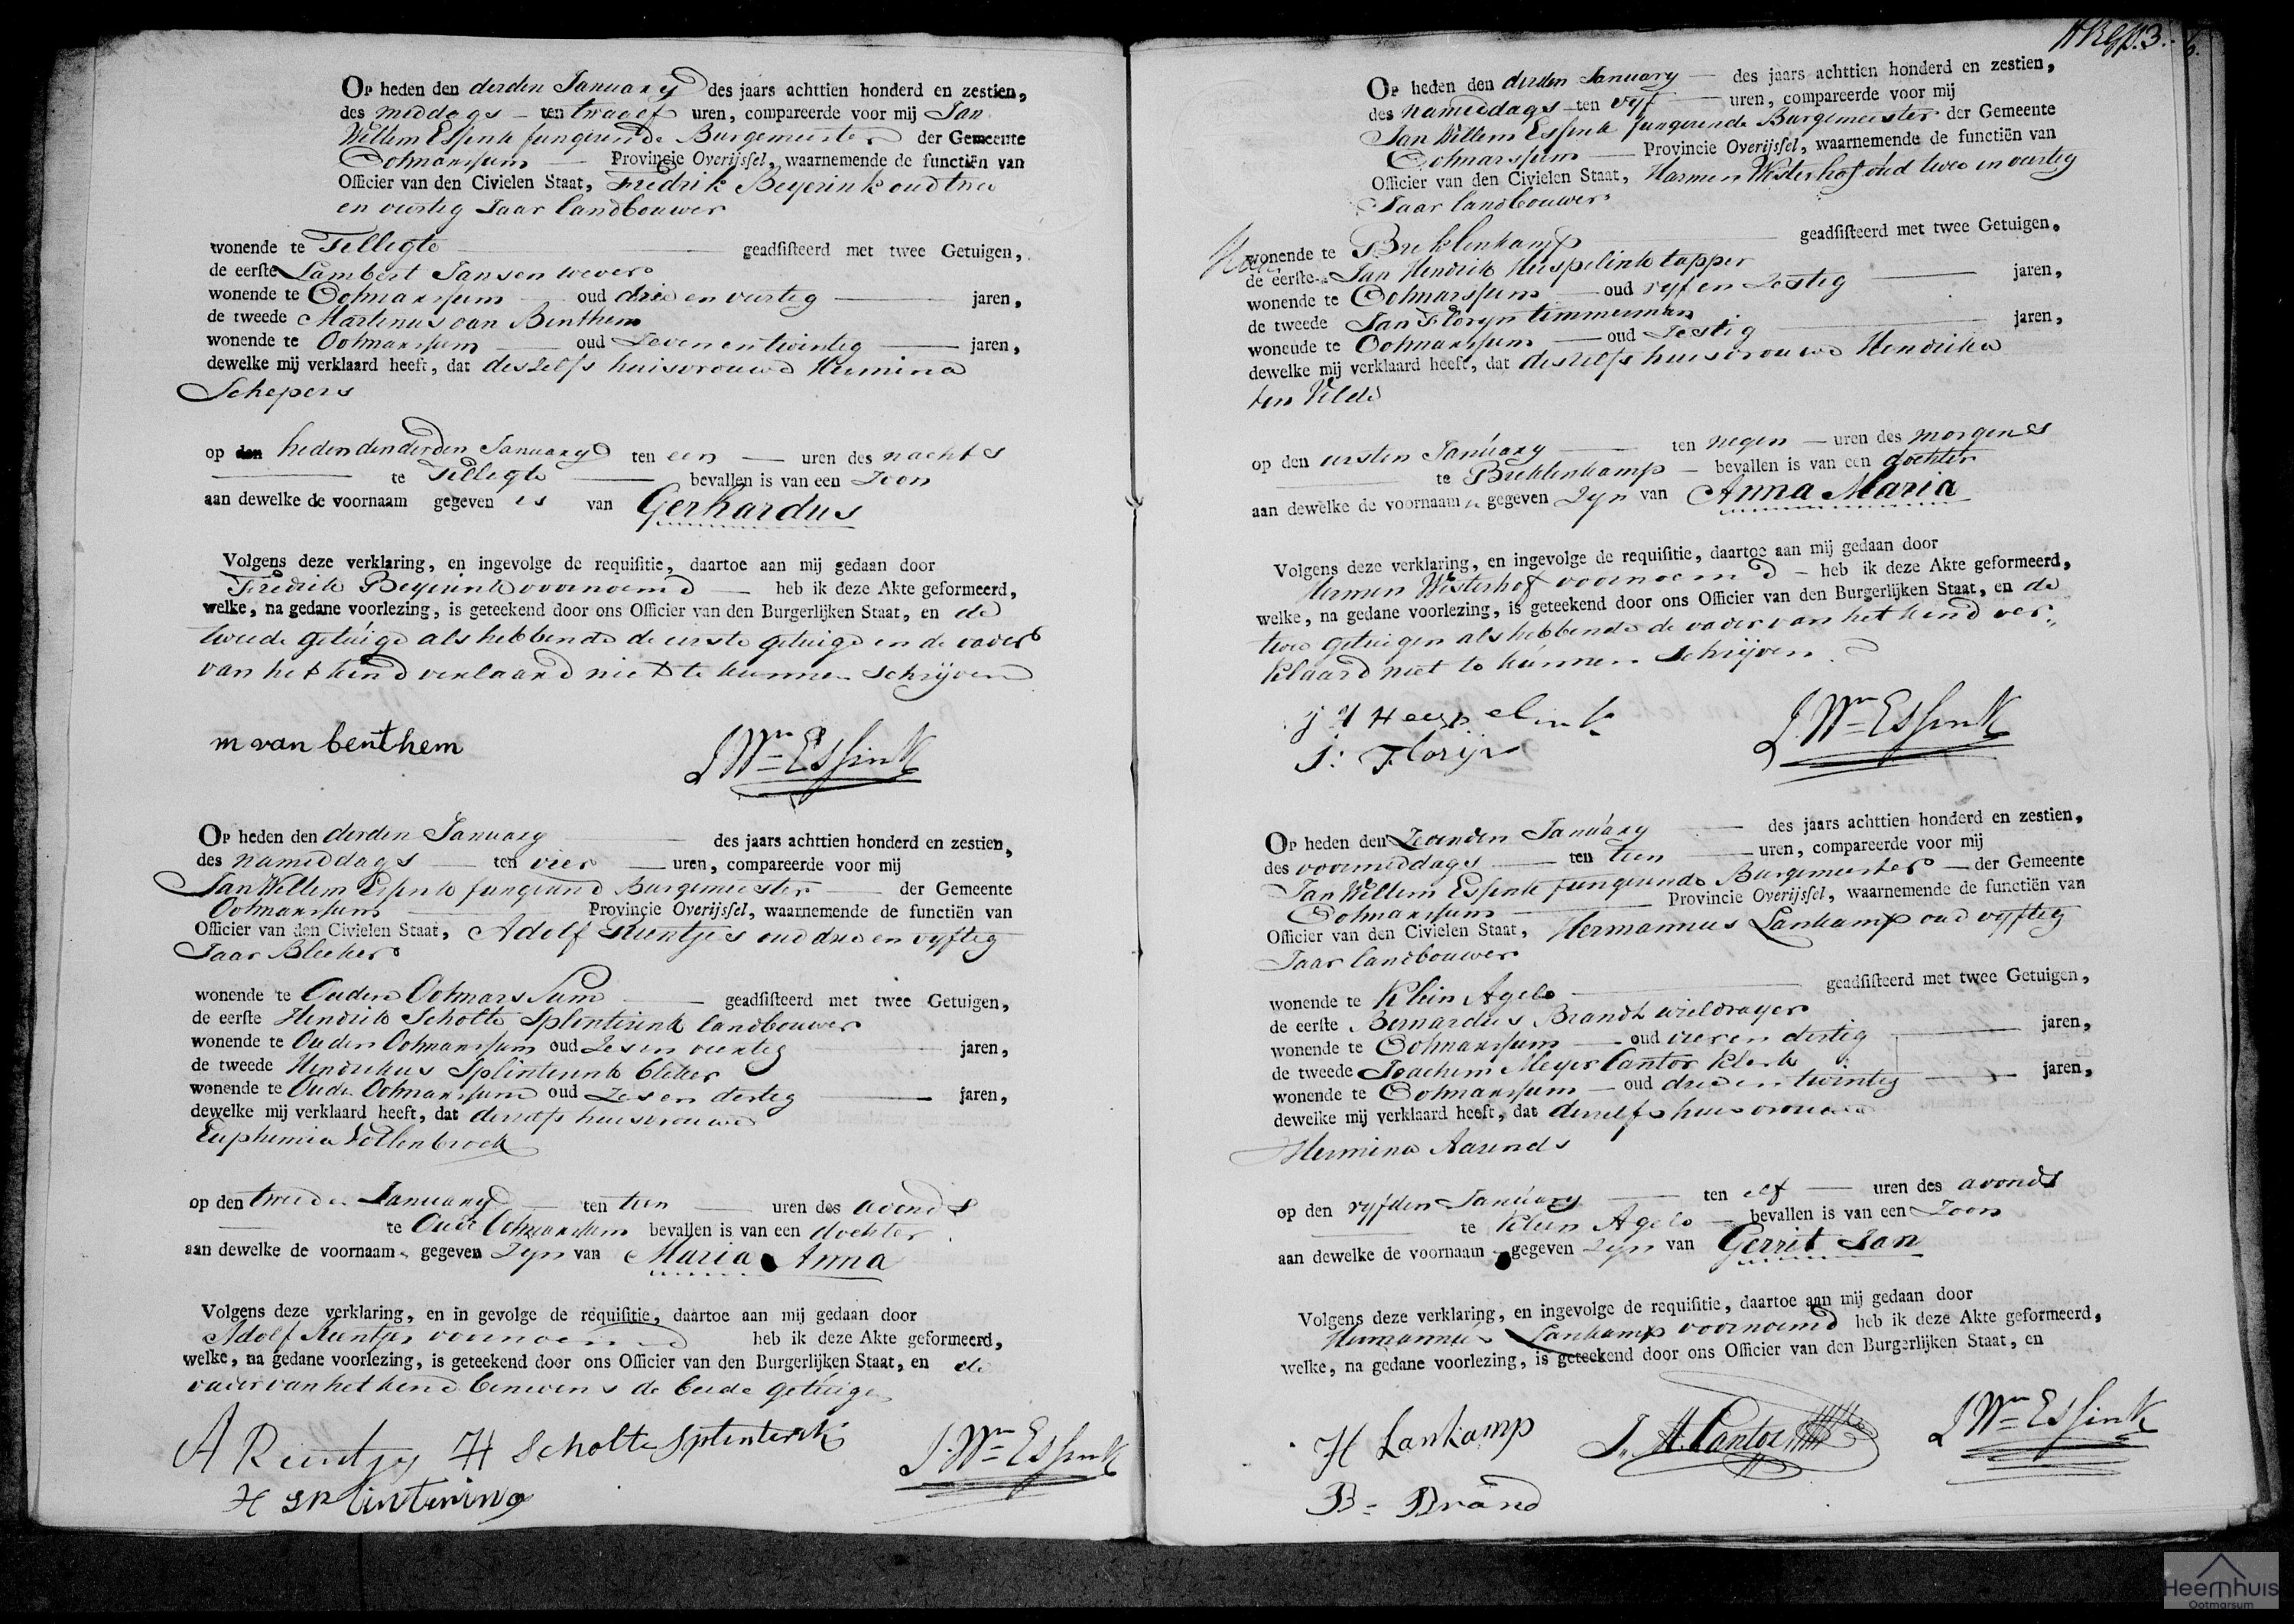 Op heden den derden January des jaars achttien honderd en zestien,
des middags ten twaalf uren, compareerde voor mij Jan
Willem Essink fungerende Burgemeester der Gemeente
Ootmarssum Provincie Overijssel, waarnemende de functiën van
Officier van den Civielen Staat, Fredrik Beyerink oud twee
en veertig Jaar landbouwer
wonende te Tilligte geadsisteerd met twee Getuigen,
de eerste Lambert Jansen wever
wonende te Ootmarssum oud drie en veertig jaren,
de tweede Martinus van Benthem
wonende te Ootmarssum oud Zeven en twintig jaren,
dewelke mij verklaard heeft, dat deszelfs huisvrouwe Hermina
Schepers
op den heden den derden January ten een uren des nachts
te Tilligte bevallen is van een Zoon
aan dewelke de voornaam gegeven is van Gerhardus
Volgens deze verklaring, en ingevolge de requisitie, daartoe aan mij gedaan door
Fredrik Beyerink voornoemd heb ik deze Akte geformeerd,
welke, na gedane voorlezing, is geteekend door ons Officier van den Burgerlijken Staat, en de
tweede getuige als hebbende de eerste getuige en de vader
van het kind verklaard niet te kunnen schrijven
m van benthem J Wm Essink
Op heden den derden January des jaars achttien honderd en zestien,
des namiddags ten vier uren, compareerde voor mij
Jan Willem Essink fungerend Burgemeester der Gemeente
Ootmarssum Provincie Overijssel, waarnemende de functiën van
Officier van den Civielen Staat, Adolf Reintjes oud drie en vyftig
Jaar Bleeker
wonende te Ouden Ootmarssum geadsisteerd met twee Getuigen,
de eerste Hendrik Scholte Splinterink landbouwer
wonende te Ouden Ootmarssum oud Zes en veertig jaren,
de tweede Hendrikus Splinterink bleker
wonende te Oude Ootmarssum oud Zes en dertig jaren,
dewelke mij verklaard heeft, dat derzelfs huisvrouwe
Euphemia Vollenbroek
op den tweeden January ten tien uren des avonds
te Oude Ootmarssum bevallen is van een dochter
aan dewelke de voornaam gegeven Zyn van Maria Anna
Volgens deze verklaring, en in gevolge de requisitie, daartoe aan mij gedaan door
Adolf Reintjes voornoemd heb ik deze Akte geformeerd,
welke, na gedane voorlezing, is geteekend door ons Officier van den Burgerlijken Staat, en de
vader van het kind benevens de beide getuigen
A Reintjes H Scholte Splenterik J. Wm Essink
H Splintering
Op heden den derden January des jaars achttien honderd en zestien,
des namiddags ten vyf uren, compareerde voor mij
Jan Willem Essink fungerende Burgemeester der Gemeente
Ootmarssum Provincie Overijssel, waarnemende de functiën van
Officier van den Civielen Staat, Harmen Westerhof oud twee en veertig
Jaar landbouwer
wonende te Breklenkamp geadsisteerd met twee Getuigen,
de eerste Jan Hendrik Heupelink tapper
wonende te Ootmarssum oud vyf en Zestig jaren,
de tweede Jan Floryn timmerman
wonende te Ootmarssum oud Zestig jaren,
dewelke mij verklaard heeft, dat deszelfs huisvrouwe Hendrika
ten Velde
op den eersten January ten negen uren des morgens
te Breklenkamp bevallen is van een dochter
aan dewelke de voornaam n gegeven Zyn van Anna Maria
Volgens deze verklaring, en ingevolge de requisitie, daartoe aan mij gedaan door
Hermen Westerhof voornoemd heb ik deze Akte geformeerd,
welke, na gedane voorlezing, is geteekend door ons Officier van den Burgerlijken Staat, en de
twee getuigen als hebbende de vader van het kind ver
klaard niet te kunnen schrijven
j H Heupelink J. Wm Essink
j: Florijn
Op heden den Zevenden January des jaars achttien honderd en zestien,
des voormiddags ten tien uren, compareerde voor mij
Jan Willem Essink fungerende Burgemeester der Gemeente
Ootmarssum Provincie Overijssel, waarnemende de functiën van
Officier van den Civielen Staat, Hermannus Lankamp oud vyftig
Jaar landbouwer
wonende te Klein Agelo geadsisteerd met twee Getuigen,
de eerste Bernardus Brandt wieldrayer
wonende te Ootmarssum oud vier en dertig jaren,
de tweede Joachem Meyer Cantor klerk
wonende te Ootmarssum oud drie en twintig jaren,
dewelke mij verklaard heeft, dat derzelfs huisvrouwe
Hermina Aarends
op den vyfden January ten elf uren des avonds
te Klein Agelo bevallen is van een Zoon
aan dewelke de voornaam gegeven Zyn van Gerrit Jan
Volgens deze verklaring, en ingevolge de requisitie, daartoe aan mij gedaan door
Hermannus Lankamp voornoemd heb ik deze Akte geformeerd,
welke, na gedane voorlezing, is geteekend door ons Officier van den Burgerlijken Staat, en
H Lankamp J. M. Cantor J Wm Essink
B= Brand
Heemhuis
Ootmarsum